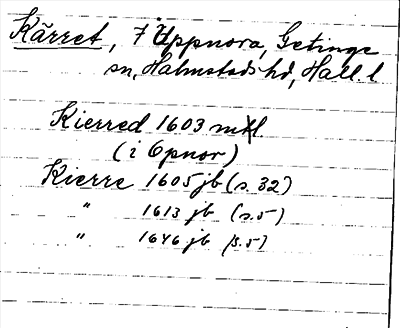 Kärret, 7 Uppnora, Getinge
sn, Halmstads hd, Hall. l
Kierred 1603 mtl
(i Opnor)
Kierre 1605 jb (s. 32)
" 1613 jb (s. 5)
" 1646 jb (s. 5)